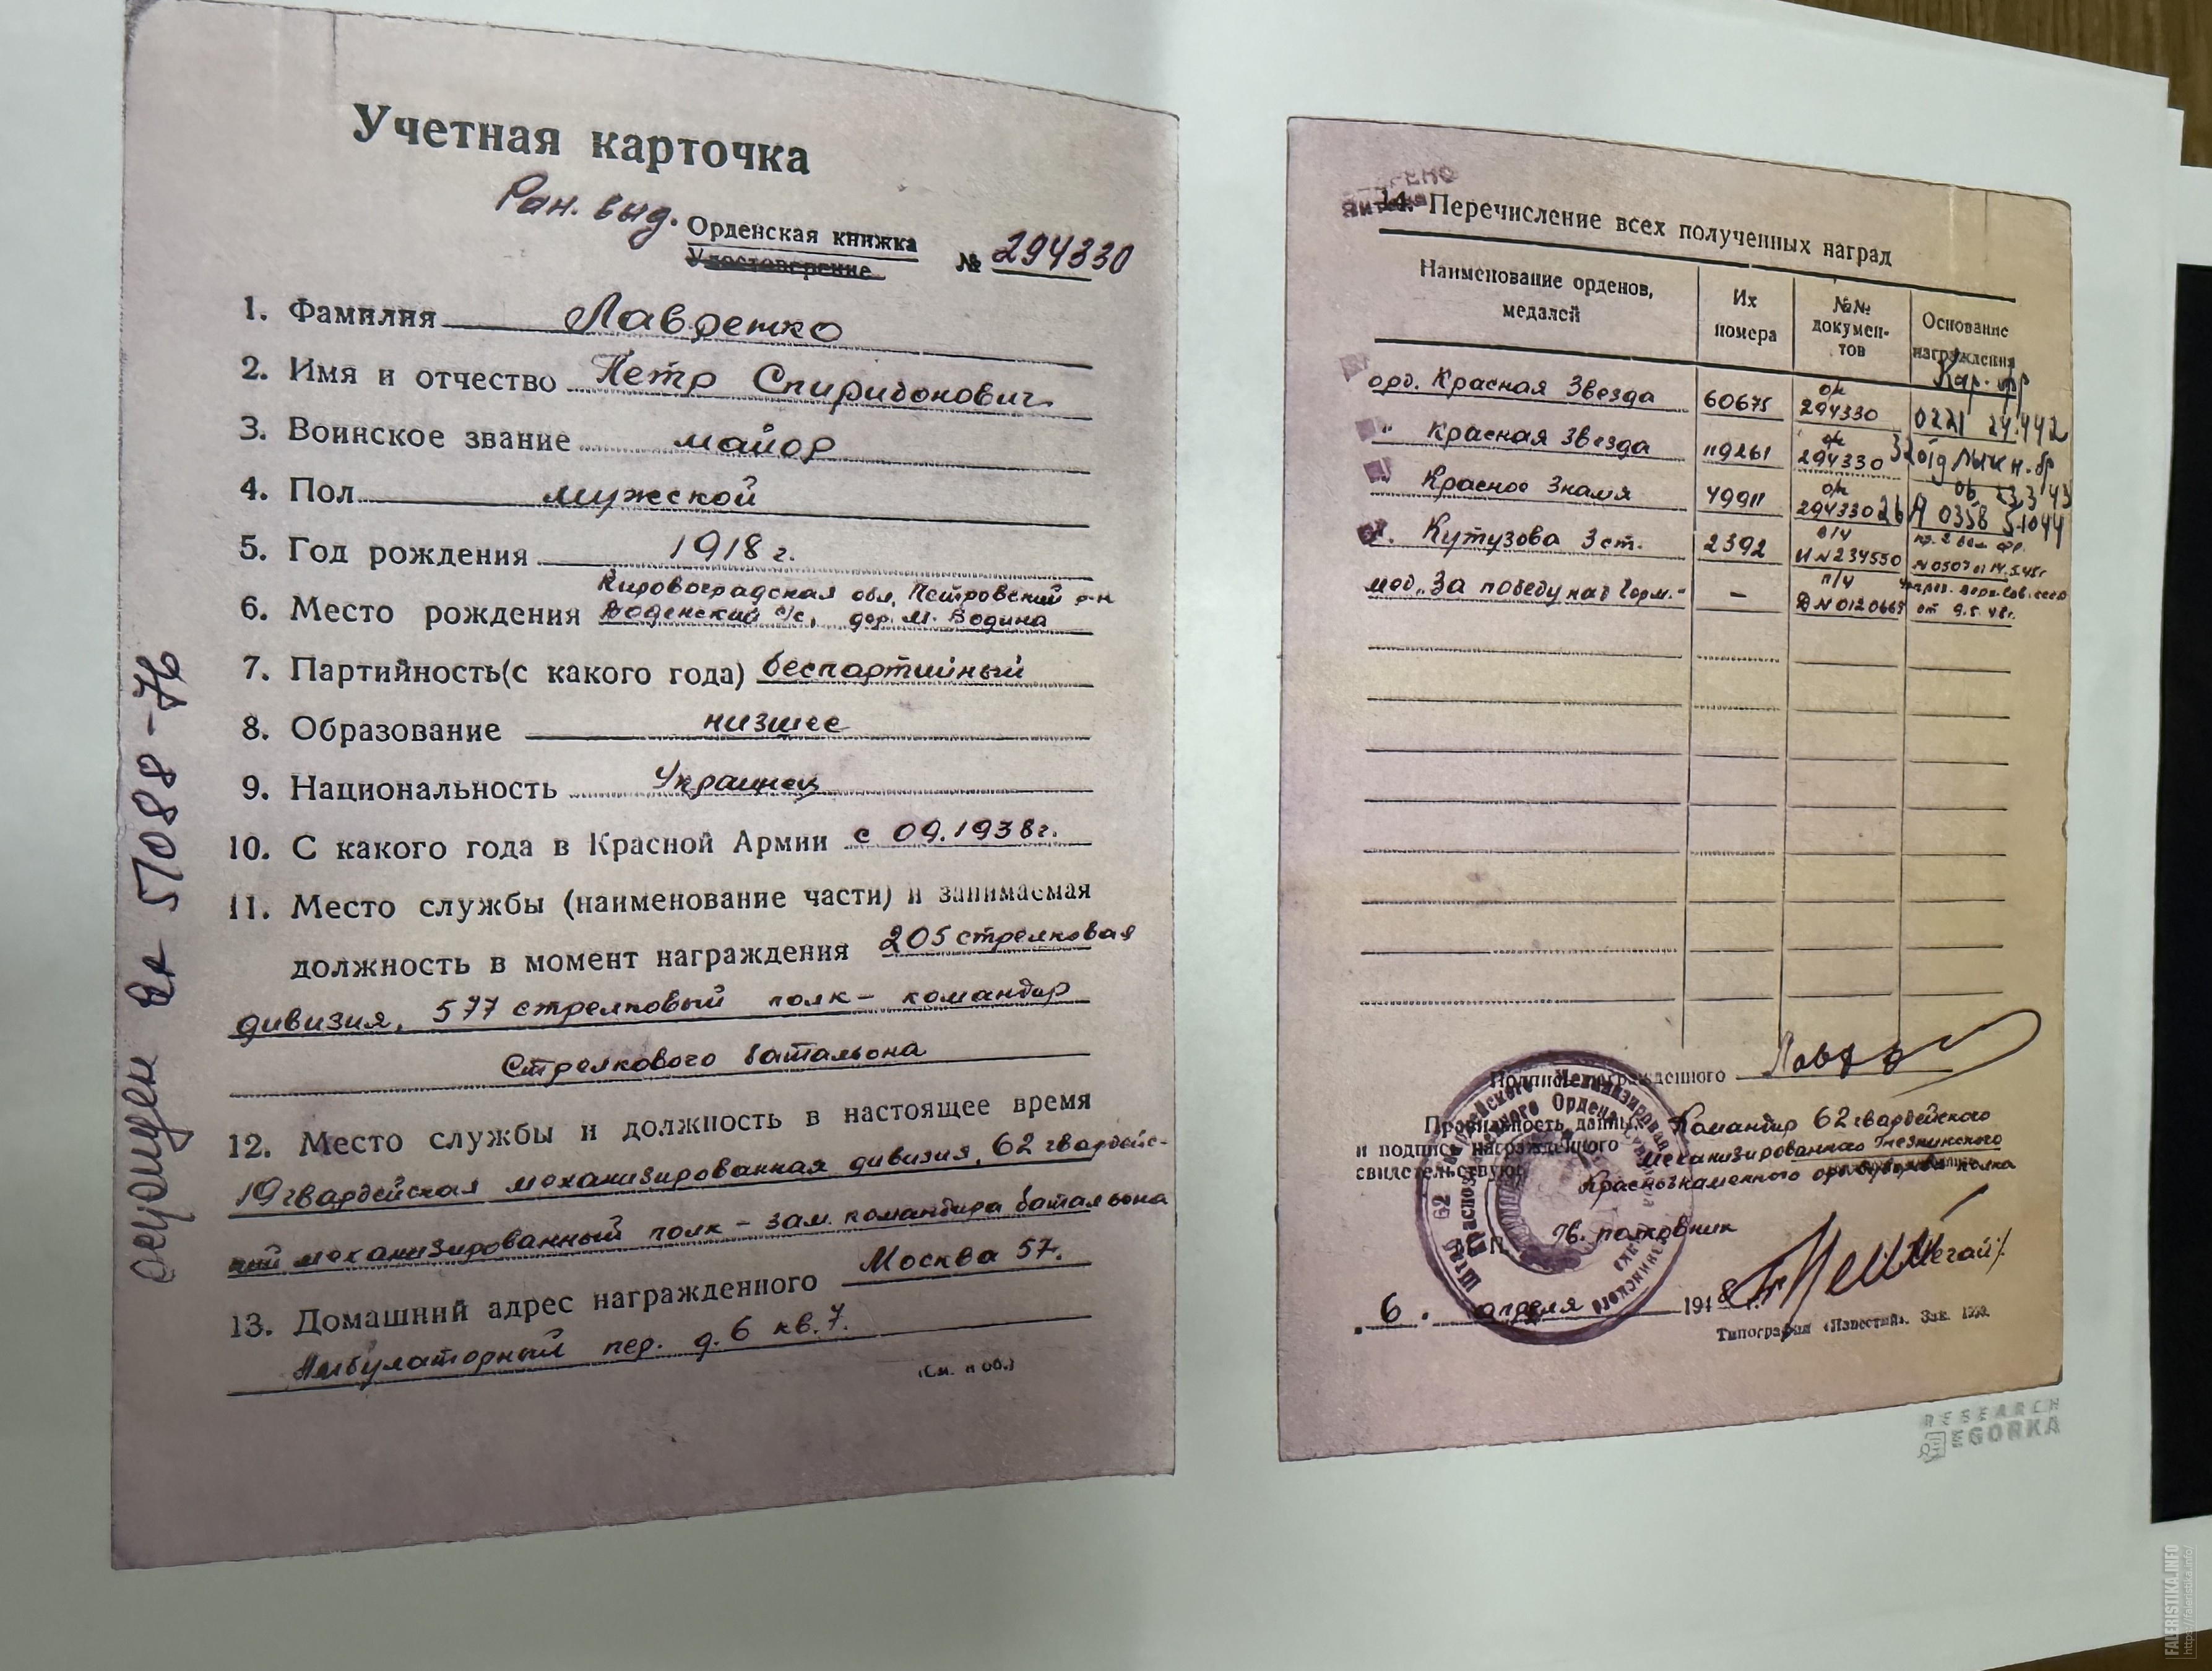 Учетная карточка
Ран. выд. Орденская книжка
Удостоверение № 294330
1. Фамилия Лавренко
2. Имя и отчество Петр Спиридонович
3. Воинское звание майор
4. Пол мужской
5. Год рождения 1918 г.
Кировоградская обл. Петровский р-н
6. Место рождения Воденский с/с, дер. М. Водина
7. Партийность(с какого года) беспартийный
8. Образование низшее
9. Национальность Украинец
10. С какого года в Красной Армии с 09.1938г.
11. Место службы (наименование части) и занимаемая
должность в момент награждения 205 стрелковая
дивизия, 577 стрелковый полк – командир
Стрелкового батальона
12. Место службы и должность в настоящее время
19 гвардейская механизированная дивизия, 62 гвардейс-
кий механизированный полк – зам. командира батальона
13. Домашний адрес награжденного Москва 57.
Амбулаторный пер. д. 6 кв. 7.
(См. на об.)
осужден 57088-
14. Перечисление всех полученных наград
Наименование орденов, медалей
Их номера
№№ документов
Основание награждения
Кар. фр
орд. Красная Звезда 60675 ор 294330 0221 24.442
" Красная Звезда 119261 ор 294330
Красное Знамя 49911 ор 294330 0358 51044
Кутузова 3 ст. 2392 в/ч И N 234550 N 0507 от 14.5.45г
мед. "За победу над Герм." – п/ч N 0120669 от 9.5.45г.
Подпись награжденного
Правильность данных
и подпись награжденного
свидетельствую
Командир 62 гвардейского
механизированного Гнезнинского
Краснознаменного полка
Гв. полковник
6. апреля 1948 г.
Типография «Известий». Зак.
RESEARCH
GORKA
FALERISTIKA.INFO
https://faleristika.info/